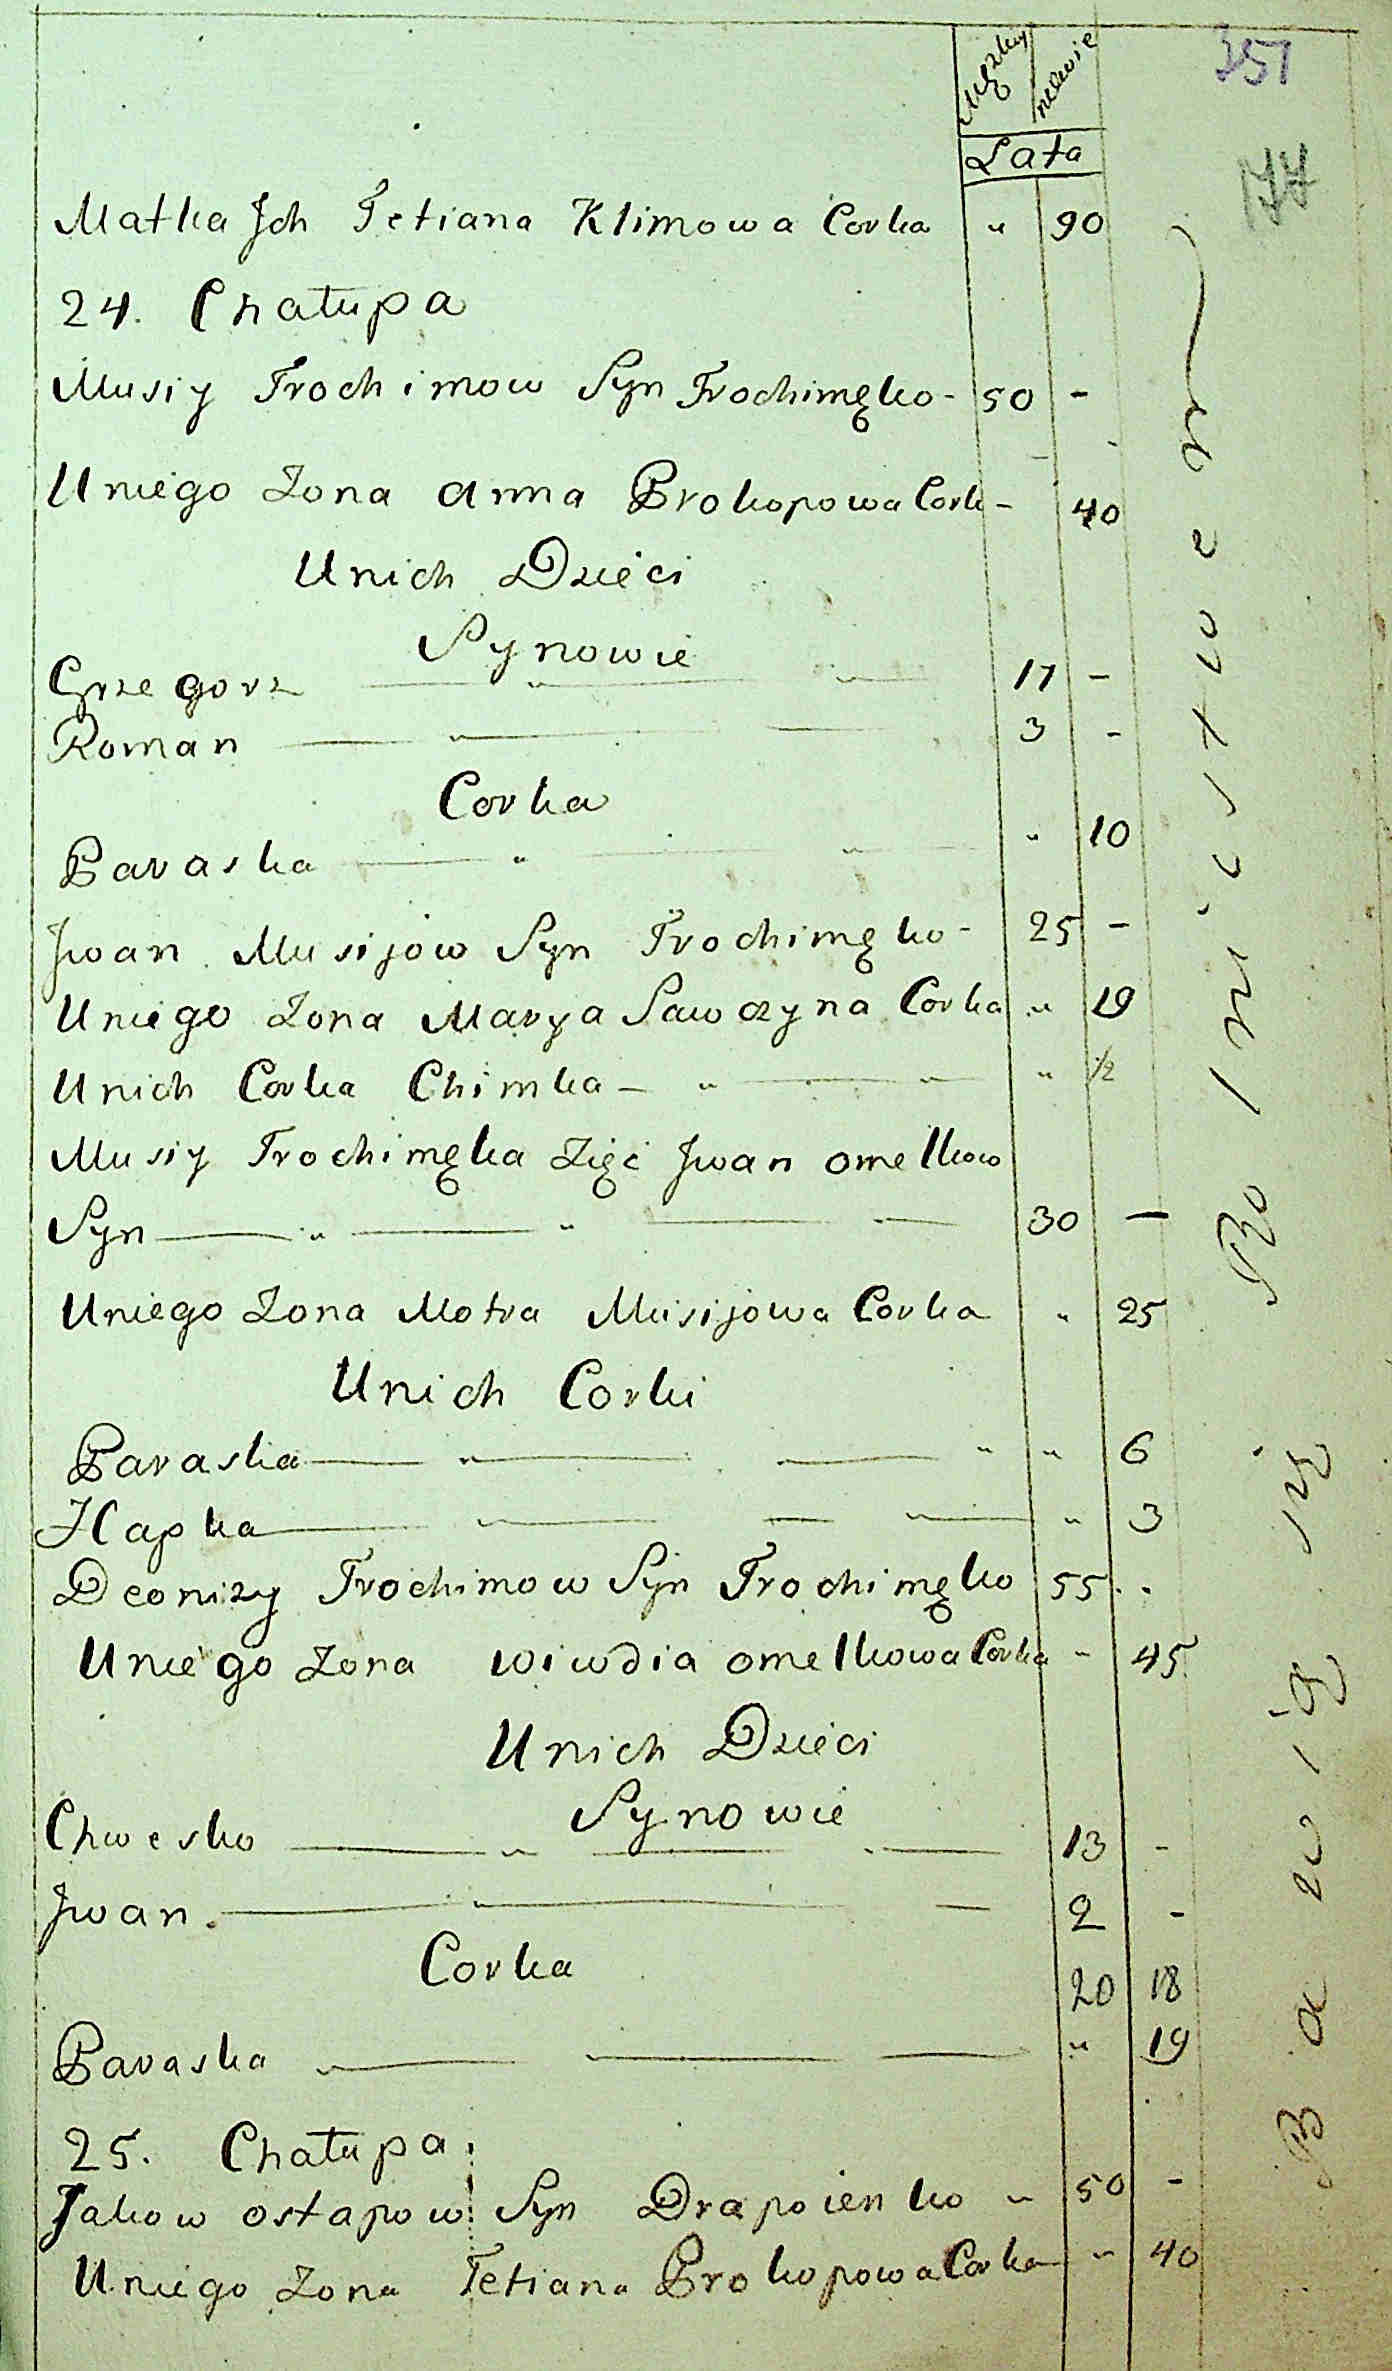 351
177
Męzkie niewie
Lata
Matka Jch Tetiana Klimowa Corka " 90
24. Chałupa
Musiy Trochimow Syn Trochimęko - 50 -
Uniego Zona Anna Prokopowa Cork - 40
Unich Dzieci
Synowie
Grzegorz — " — " — 17 -
Roman — " — 3 -
Corka
Paraska — " — " — " 10
Jwan Musijow Syn Trochimęko - 25 -
Uniego Zona Marya Sawczyna Corka " 19
Unich Corka Chimka — " — " — " 1/2
Musiy Trochimęka Zięć Jwan omelkow
Syn — " — " — 30 —
Uniego Zona Motra Musijowa Corka " 25
Unich Corki
Paraska — " — " " 6
Hapka — " — " — " 3
Deonizy Trochimow Syn Trochimęko 55 - -
Uniego Zona wiwdia omelkowa Corka - 45
Unich Dzieci
Synowie
Chwesko — " — " — 13 -
Jwan. — " — 2 -
Corka
20 18
Paraska — " — " 19
25. Chałupa
Jakow ostapow Syn Drapoienko " 50 -
Uniego Zona Tetiana Prokopowa Corka " 40
Bawią się Rolnictwem